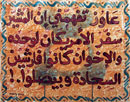 عاوز تفهمني إن الستة
سفر الأمريكان لوحده
والإخوان كانوا قارشين
السعادة وبيصلوا!